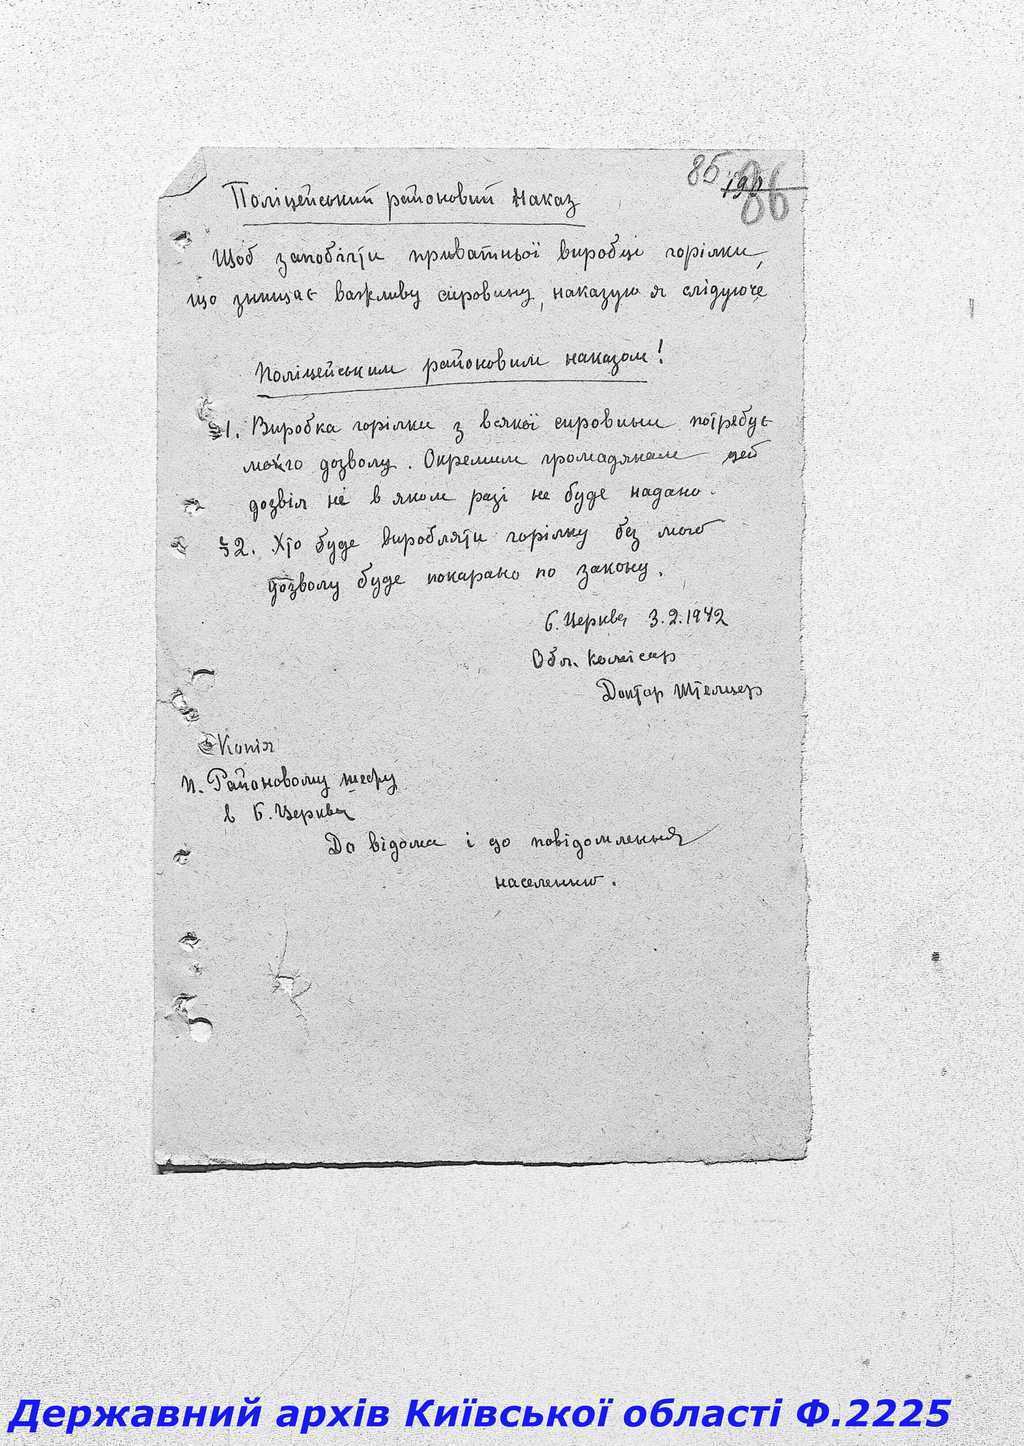 85
86
Поліцейський районовий наказ
Щоб запобігти приватньої виробці горілки,
що знищає важливу сировину, наказую я слідуюче
Поліцейським районовим наказом!
§1. Виробка горілки з всякої сировини потребує
мойго дозволу. Окремим громадянам цей
дозвіл не в яком разі не буде надано.
§2. Хто буде виробляти горілку без мого
дозволу буде покарано по закону.
Б. Церква 3.2.1942
Обл. комісар
Доктор Штельцер
Копія
п. Районовому шефу
в Б. Церква
До відома і до повідомлення
населенню.
Державний архів Київської області Ф.2225